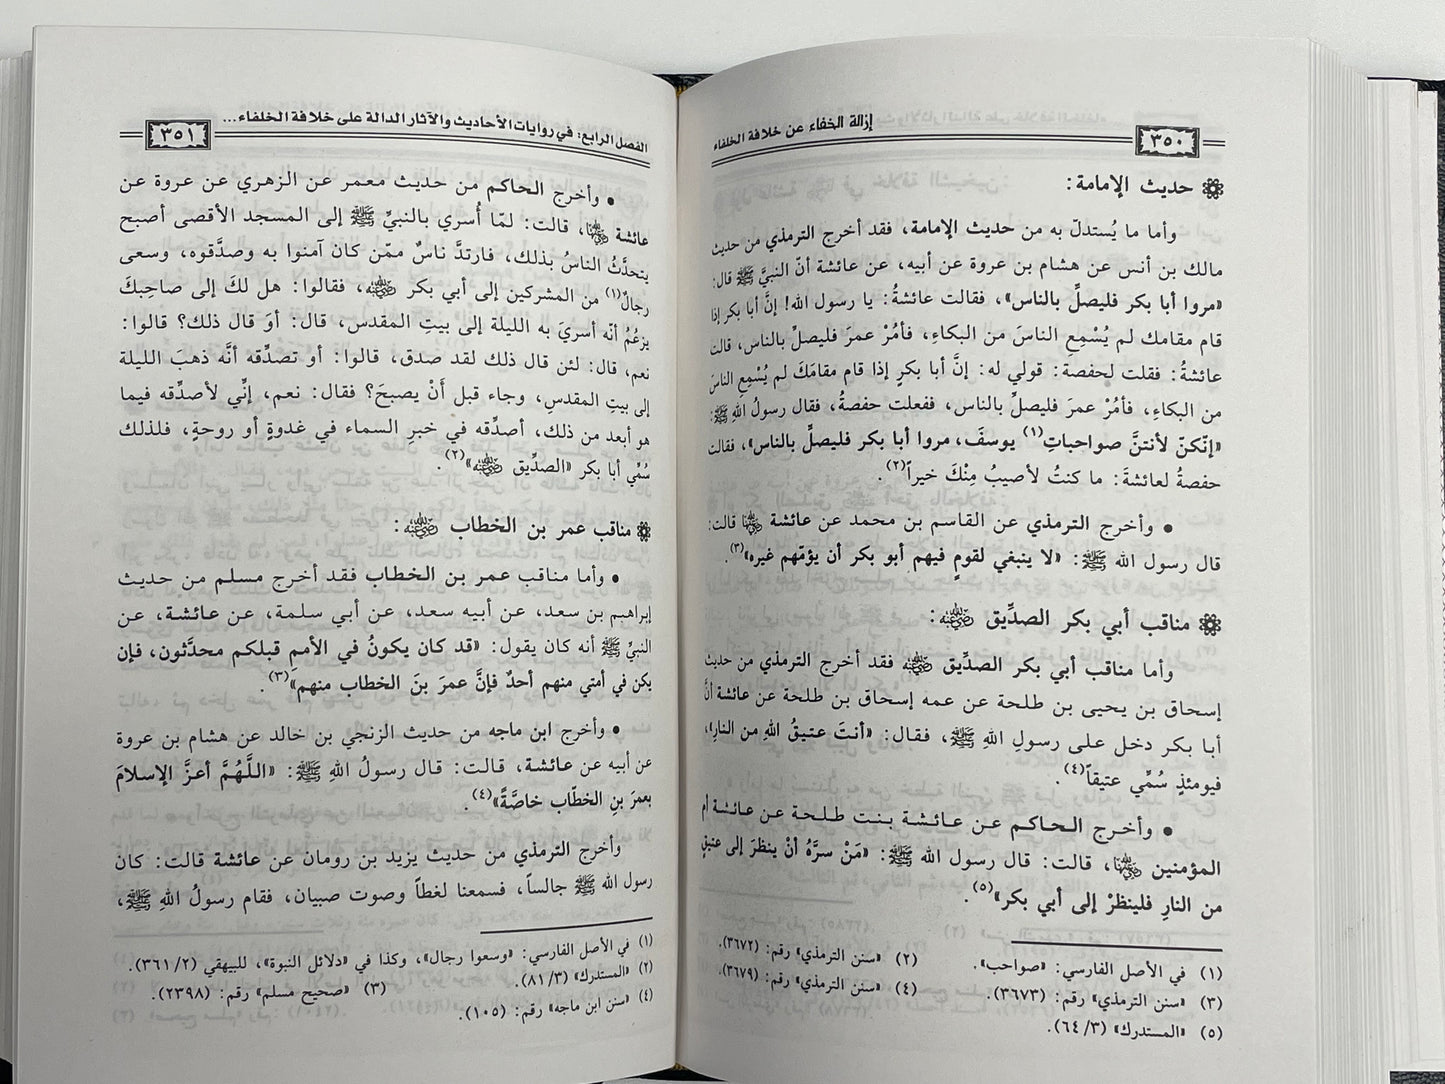 ٣٥٠
إزالة الخفاء عن خلافة الخلفاء
حديث الإمامة:
وأما ما يُستدلّ به من حديث الإمامة، فقد أخرج الترمذي من حديث
مالك بن أنس عن هشام بن عروة عن أبيه، عن عائشة أنّ النبيَّ ﷺ قال:
«مروا أبا بكر فليصلِّ بالناس»، فقالت عائشةُ: يا رسول الله! إنَّ أبا بكر إذا
قام مقامك لم يُسْمِعِ الناسَ من البكاءِ، فأمُرْ عمرَ فليصلِّ بالناس، قالت
عائشةُ: فقلت لحفصة: قولي له: إنَّ أبا بكرٍ إذا قام مقامَكَ لم يُسْمِعِ الناسَ
من البكاءِ، فأمُرْ عمرَ فليصلِّ بالناس، ففعلت حفصةُ، فقال رسولُ اللهِ ﷺ:
«إنّكنّ لأنتنَّ صواحباتِ(١) يوسفَ، مروا أبا بكر فليصلِّ بالناس»، فقالت
حفصةُ لعائشةَ: ما كنتُ لأصيبُ مِنْكَ خيراً(٢).
• وأخرج الترمذي عن القاسم بن محمد عن عائشة رضي الله عنها قالت:
قال رسول الله ﷺ: «لا ينبغي لقومٍ فيهم أبو بكر أن يؤمّهم غيره»(٣).
مناقب أبي بكر الصدِّيق رضي الله عنه:
وأما مناقب أبي بكر الصدِّيق رضي الله عنه فقد أخرج الترمذي من حديث
إسحاق بن يحيى بن طلحة عن عمه إسحاق بن طلحة عن عائشة أنَّ
أبا بكر دخل على رسولِ اللهِ ﷺ، فقال: «أنتَ عتيقُ اللهِ من النارِ»،
فيومئذٍ سُمِّي عتيقاً(٤).
• وأخرج الحاكم عن عائشة بنت طلحة عن عائشة أم
المؤمنين رضي الله عنها، قالت: قال رسول الله ﷺ: «مَنْ سرَّهُ أنْ ينظرَ إلى عتيقٍ
من النارِ فلينظرْ إلى أبي بكر»(٥).
(١) في الأصل الفارسي: «صواحب». (٢) «سنن الترمذي» رقم: (٣٦٧٢).
(٣) «سنن الترمذي» رقم: (٣٦٧٣). (٤) «سنن الترمذي» رقم: (٣٦٧٩).
(٥) «المستدرك» (٦٤/٣).
الفصل الرابع: في روايات الأحاديث والآثار الدالة على خلافة الخلفاء...
٣٥١
• وأخرج الحاكم من حديث معمر عن الزهري عن عروة عن
عائشة رضي الله عنها، قالت: لمّا أُسري بالنبيِّ ﷺ إلى المسجد الأقصى أصبح
يتحدَّثُ الناسُ بذلك، فارتدَّ ناسٌ ممّن كان آمنوا به وصدَّقوه، وسعى
رجالٌ(١) من المشركين إلى أبي بكر رضي الله عنه، فقالوا: هل لكَ إلى صاحِبكَ
يزعُمُ أنّه أسريَ به الليلة إلى بيتِ المقدس، قال: أوَ قال ذلك؟ قالوا:
نعم، قال: لئن قال ذلك لقد صدق، قالوا: أو تصدِّقه أنَّه ذهبَ الليلة
إلى بيتِ المقدسِ، وجاء قبل أَنْ يصبحَ؟ فقال: نعم، إنِّي لأصدِّقه فيما
هو أبعد من ذلك، أصدِّقه في خبرِ السماء في غدوةٍ أو روحةٍ، فلذلك
سُمِّي أبا بكر «الصدِّيق رضي الله عنه»(٢).
مناقب عمر بن الخطاب رضي الله عنه:
• وأما مناقب عمر بن الخطاب فقد أخرج مسلم من حديث
إبراهيم بن سعد، عن أبيه سعد، عن أبي سلمة، عن عائشة، عن
النبيِّ ﷺ أنه كان يقول: «قد كان يكونُ في الأممِ قبلكم محدَّثون، فإن
يكن في أمتي منهم أحدٌ فإنَّ عمرَ بنَ الخطاب منهم»(٣).
• وأخرج ابن ماجه من حديث الزنجي بن خالد عن هشام بن عروة
عن أبيه عن عائشة، قالت: قال رسولُ اللهِ ﷺ: «اللَّهُمَّ أعزَّ الإسلامَ
بعمرَ بنِ الخطّاب خاصَّةً»(٤).
وأخرج الترمذي من حديث يزيد بن رومان عن عائشة قالت: كان
رسول الله ﷺ جالساً، فسمعنا لغطاً وصوت صبيان، فقام رسولُ اللهِ ﷺ،
(١) في الأصل الفارسي: «وسعوا رجال»، وكذا في «دلائل النبوة»، للبيهقي (٣٦١/٢).
(٢) «المستدرك» (٨١/٣). (٣) «صحيح مسلم» رقم: (٢٣٩٨).
(٤) «سنن ابن ماجه» رقم: (١٠٥).